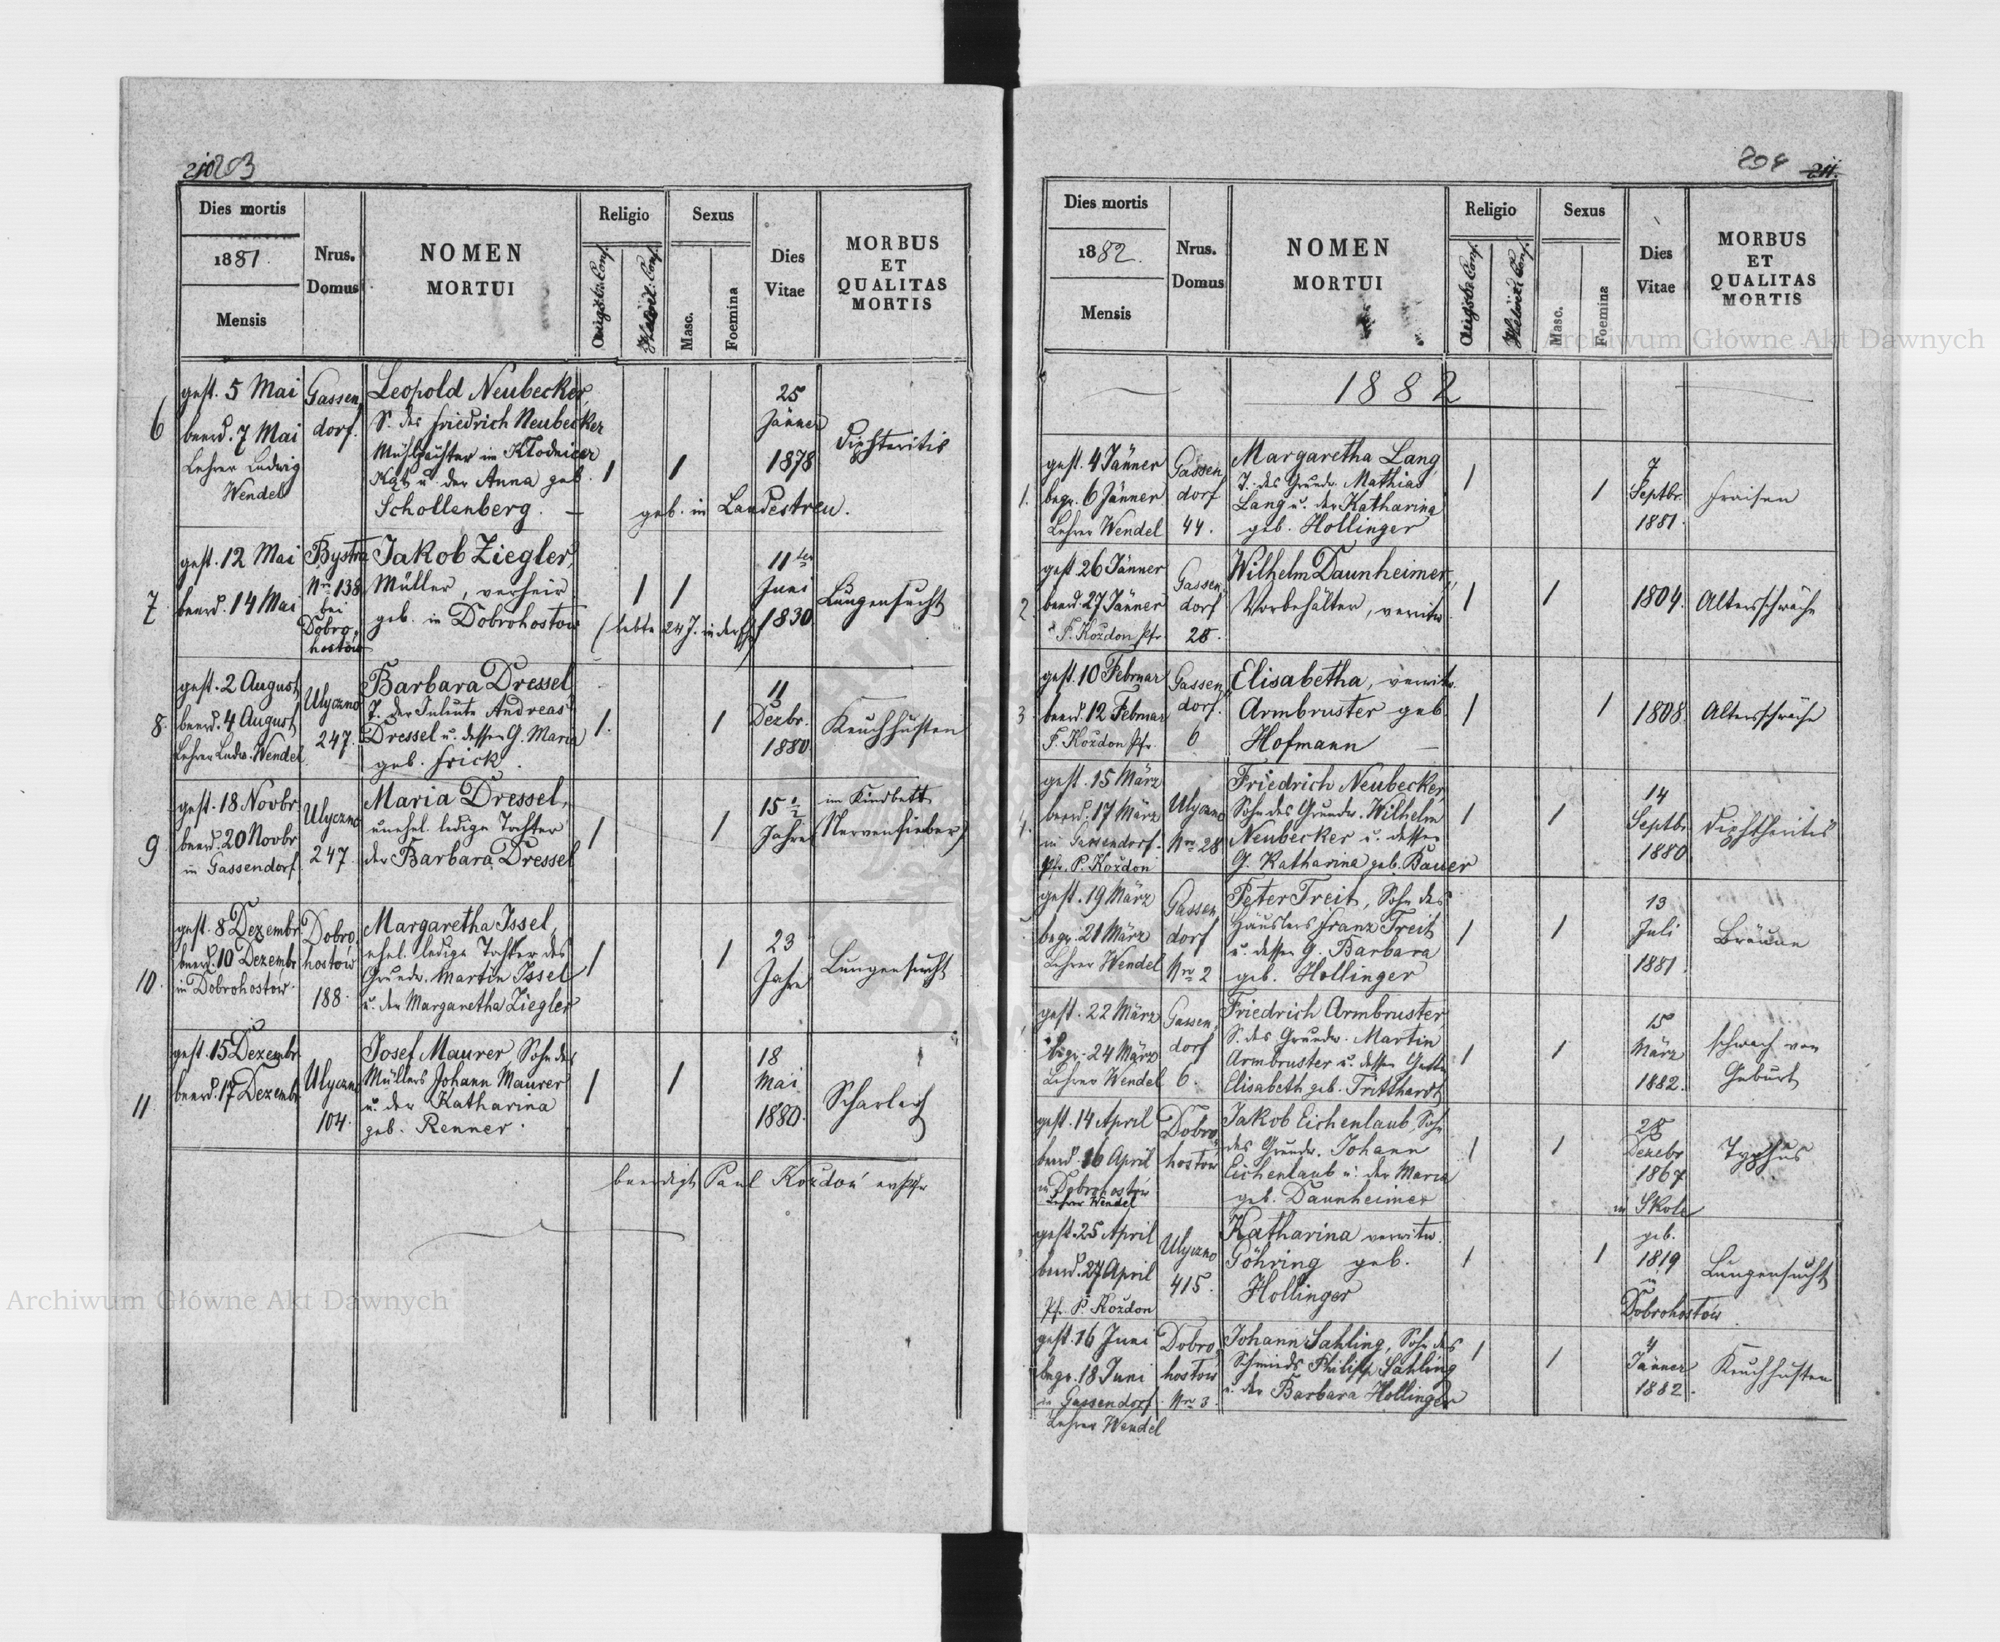 203
Dies mortis
1881.
Mensis
Nrus.
Domus
NOMEN
MORTUI
Religio
Augsb. Conf.
Helvet. Conf.
Sexus
Masc.
Foemina
Dies
Vitae
MORBUS
ET
QUALITAS
MORTIS
6
gest. 5 Mai
beerd. 7 Mai
Lehrer Ludwig
Wendel
Gassen
dorf.
Leopold Neubecker,
S. des Friedrich Neubecker
Mühlpächter in Klodnicer
u. der Anna geb.
Schollenberg. —
1
1
25
Jänner
1878
geb. in Landestreu.
Diphteritis
7
gest. 12 Mai
beerd. 14 Mai
Bystra
Nro 138
bei
Dobro,
hostow
Jakob Ziegler,
Müller, verheir.
geb. in Dobrohostow
1
1
(lebte 24 J. in der Ehe)
11ter
Juni
1830
Lungensucht
8.
gest. 2 August
beerd. 4 August
Lehrer Ludw. Wendel
Ulyczno
247.
Barbara Dressel
T. der Inleute Andreas
Dressel u. dessen G. Maria
geb. Frick.
1.
1
11
Dezbr.
1880
Keuchhusten
9
gest. 18 Novbr
beerd. 20 Novbr
in Gassendorf
Ulyczno
247.
Maria Dressel,
unehel. ledige Tochter
der Barbara Dressel
1
1
15 1/2
Jahre
im Kindbett
Nervenfieber)
10.
gest. 8 Dezembr
beerd. 10 Dezembr
in Dobrohostow.
Dobro
hostow
188.
Margaretha Issel,
ehel. ledige Tochter des
Grundw. Martin Issel
u. der Margaretha Ziegler
1
1
23
Jahre
Lungensucht
11
gest. 15 Dezembr
beerd. 17 Dezembr.
Ulyczno
104.
Josef Maurer, Sohn des
Müllers Johann Maurer
u. der Katharina
geb. Renner.
1
1
18
Mai
1880.
Scharlach
beerdigt Paul Kozdon
204
211.
Dies mortis
1882.
Mensis
Nrus.
Domus
NOMEN
MORTUI
Religio
Augsb. Conf.
Helvet. Conf.
Sexus
Masc.
Foemina
Dies
Vitae
MORBUS
ET
QUALITAS
MORTIS
1882
1.
gest. 4 Jänner
begr. 6 Jänner
Lehrer Wendel
Gassen
dorf
44.
Margaretha Lang
T. des Grundw. Mathias
Lang u. der Katharina
geb. Hollinger
1
1
7
Septbr.
1881.
Fraisen
2
gest. 26 Jänner
beerd. 27 Jänner
F. Kozdon Pfr
Gassen
dorf
28.
Wilhelm Daunheimer,
Vorbehälter, verwitw.
1
1
1804.
Altersschwäche
3
gest. 10 Februar
beerd. 12 Februar
F. Kozdon Pfr
Gassen
dorf.
6
Elisabetha, verwitw.
Armbruster geb.
Hofmann —
1
1
1808.
Altersschwäche
4.
gest. 15 März
beerd. 17 März
in Gassendorf.
Pfr. P. Kozdon
Ulyczno
Nro 28
Friedrich Neubecker,
Sohn des Grundw. Wilhelm
Neubecker u. dessen
G. Katharina geb. Bauer
1
1
14
Septbr.
1880
Diphtheritis
gest. 19 März
begr. 21 März
Lehrer Wendel
Gassen
dorf
Nro 2
Peter Treit, Sohn des
Häuslers Franz Treit
u. dessen G. Barbara
geb. Hollinger
1
1
13
Juli
1881.
Bräune
gest. 22 März
begr. 24 März
Lehrer Wendel
Gassen
dorf
6.
Friedrich Armbruster
S. des Grundw. Martin
Armbruster u. dessen Gattin
Elisabeth geb. Fritshardt
1
1
15
März
1882.
schwach von
Geburt
gest. 14 April
beerd. 16 April
in Dobrohostow
Lehrer Wendel
Dobro,
hostow
Jakob Eichenlaub, Sohn
des Grundw. Johann
Eichenlaub u. der Maria
geb. Daunheimer
1
1
28
Dezebr
1867
in Skole
Typhus
gest. 25 April
beerd. 27 April
Pfr P. Kozdon
Ulyczno
415.
Katharina verwitw.
Göhring geb.
Hollinger
1
1
geb.
1819
in
Dobrohostow
Lungensucht
gest. 16 Juni
begr. 18 Juni
in Gassendorf
Lehrer Wendel
Dobro,
hostow
Nro 3.
Johann Sahling, Sohn des
Schmieds Philipp Sahling
u. der Barbara Hollinger
1
1
4
Jänner
1882.
Keuchhusten
Archiwum Główne Akt Dawnych
Archiwum Główne Akt Dawnych